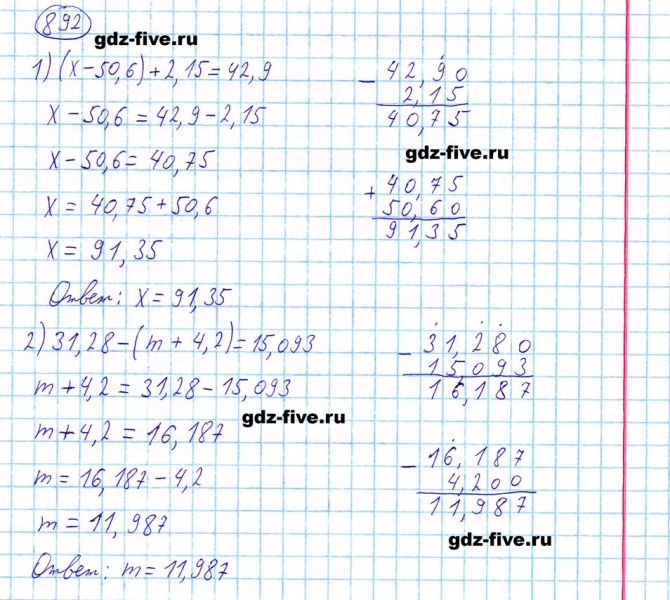 892
gdz-five.ru
1) (x-50,6)+2,15=42,9
x-50,6=42,9-2,15
x-50,6=40,75
x=40,75+50,6
x=91,35
Ответ: x=91,35
- 42,90
2,15
40,75
gdz-five.ru
+ 40,75
50,60
91,35
2) 31,28-(m+4,2)=15,093
m+4,2=31,28-15,093
gdz-five.ru
m+4,2=16,187
m=16,187-4,2
m=11,987
Ответ: m=11,987
- 31,280
15,093
16,187
- 16,187
4,200
11,987
gdz-five.ru